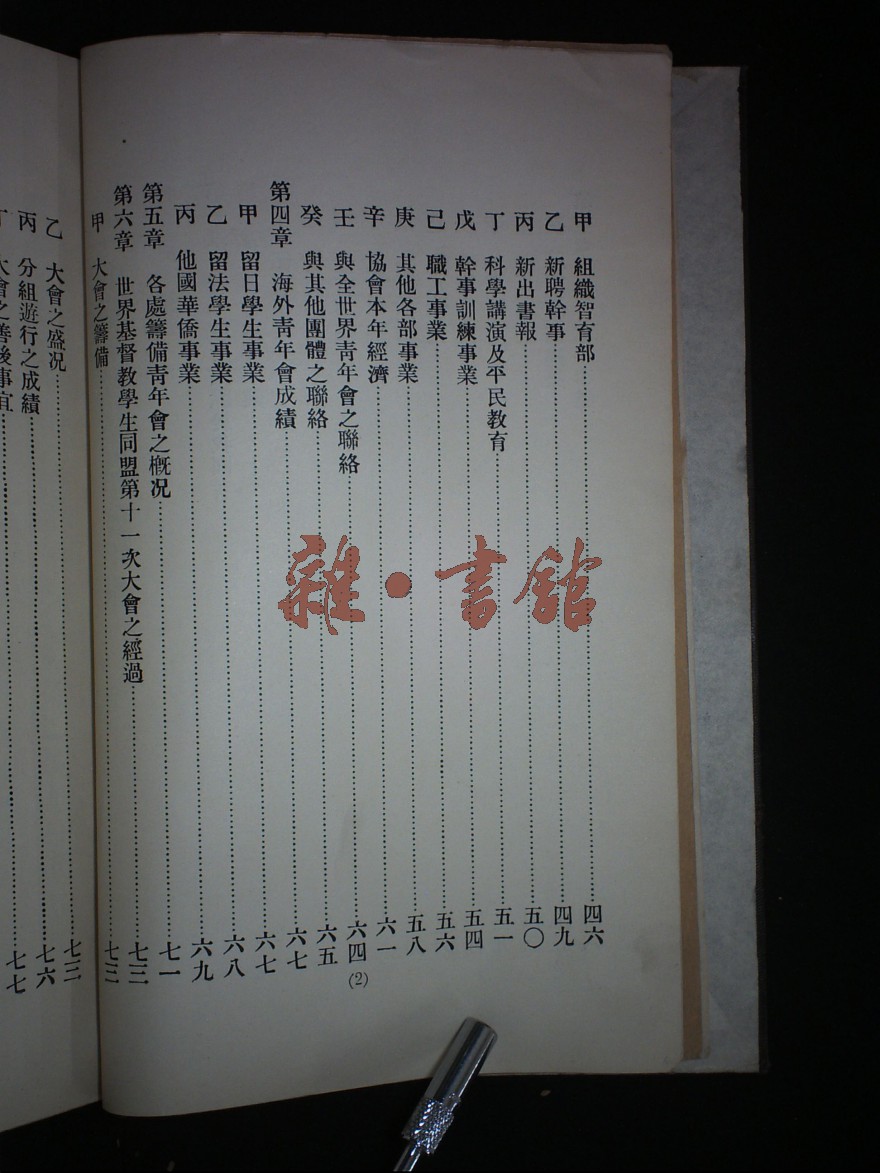 甲　組織智育部……四六
乙　新聘幹事……四九
丙　新出書報……五〇
丁　科學講演及平民教育……五一
戊　幹事訓練事業……五四
己　職工事業……五六
庚　其他各部事業……五八
辛　協會本年經濟……六一
壬　與全世界靑年會之聯絡……六四
癸　與其他團體之聯絡……六五
第四章　海外靑年會成績……六七
甲　留日學生事業……六七
乙　留法學生事業……六八
丙　他國華僑事業……六九
第五章　各處籌備靑年會之槪況……七一
第六章　世界基督教學生同盟第十一次大會之經過……七三
甲　大會之籌備……七三
乙　大會之盛況……七三
丙　分組遊行之成績……七六
丁　大會之善後事宜……七七
(2)
雜・書館